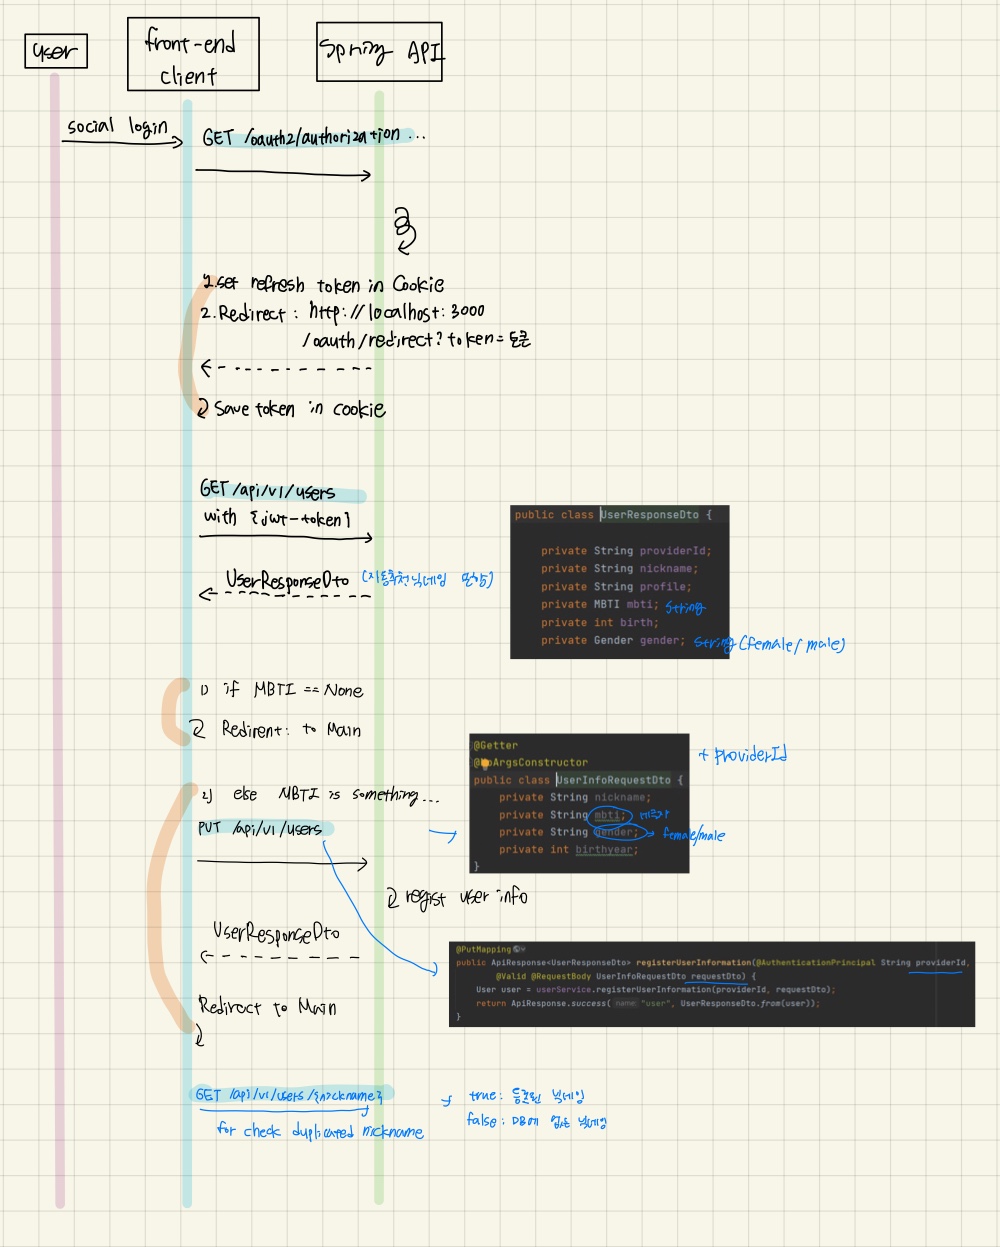 user
front-end
client
Spring API
social login
GET /oauth2/authorization ...
1. set refresh token in Cookie
2. Redirect : http://localhost:3000
/oauth/redirect?token=토큰
Save token in cookie
GET /api/v1/users
with {jwt-token}
UserResponseDto (자동추천닉네임 포함)
public class UserResponseDto {
private String providerId;
private String nickname;
private String profile;
private MBTI mbti; String
private int birth;
private Gender gender; String (female/male)
1) if MBTI == None
Redirent: to Main
@Getter
@NoArgsConstructor
+ providerId
public class UserInfoRequestDto {
private String nickname;
private String mbti;
private String gender; female/male
private int birthyear;
}
2) else MBTI is something...
PUT /api/v1/users
regist user info
UserResponseDto
@PutMapping
public ApiResponse<UserResponseDto> registerUserInformation(@AuthenticationPrincipal String providerId,
@Valid @RequestBody UserInfoRequestDto requestDto) {
User user = userService.registerUserInformation(providerId, requestDto);
return ApiResponse.success( name: "user", UserResponseDto.from(user));
}
Redirect to Main
GET /api/v1/users/{nickname}
for check duplicated nickname
true : 등록된 닉네임
false : DB에 없는 닉네임